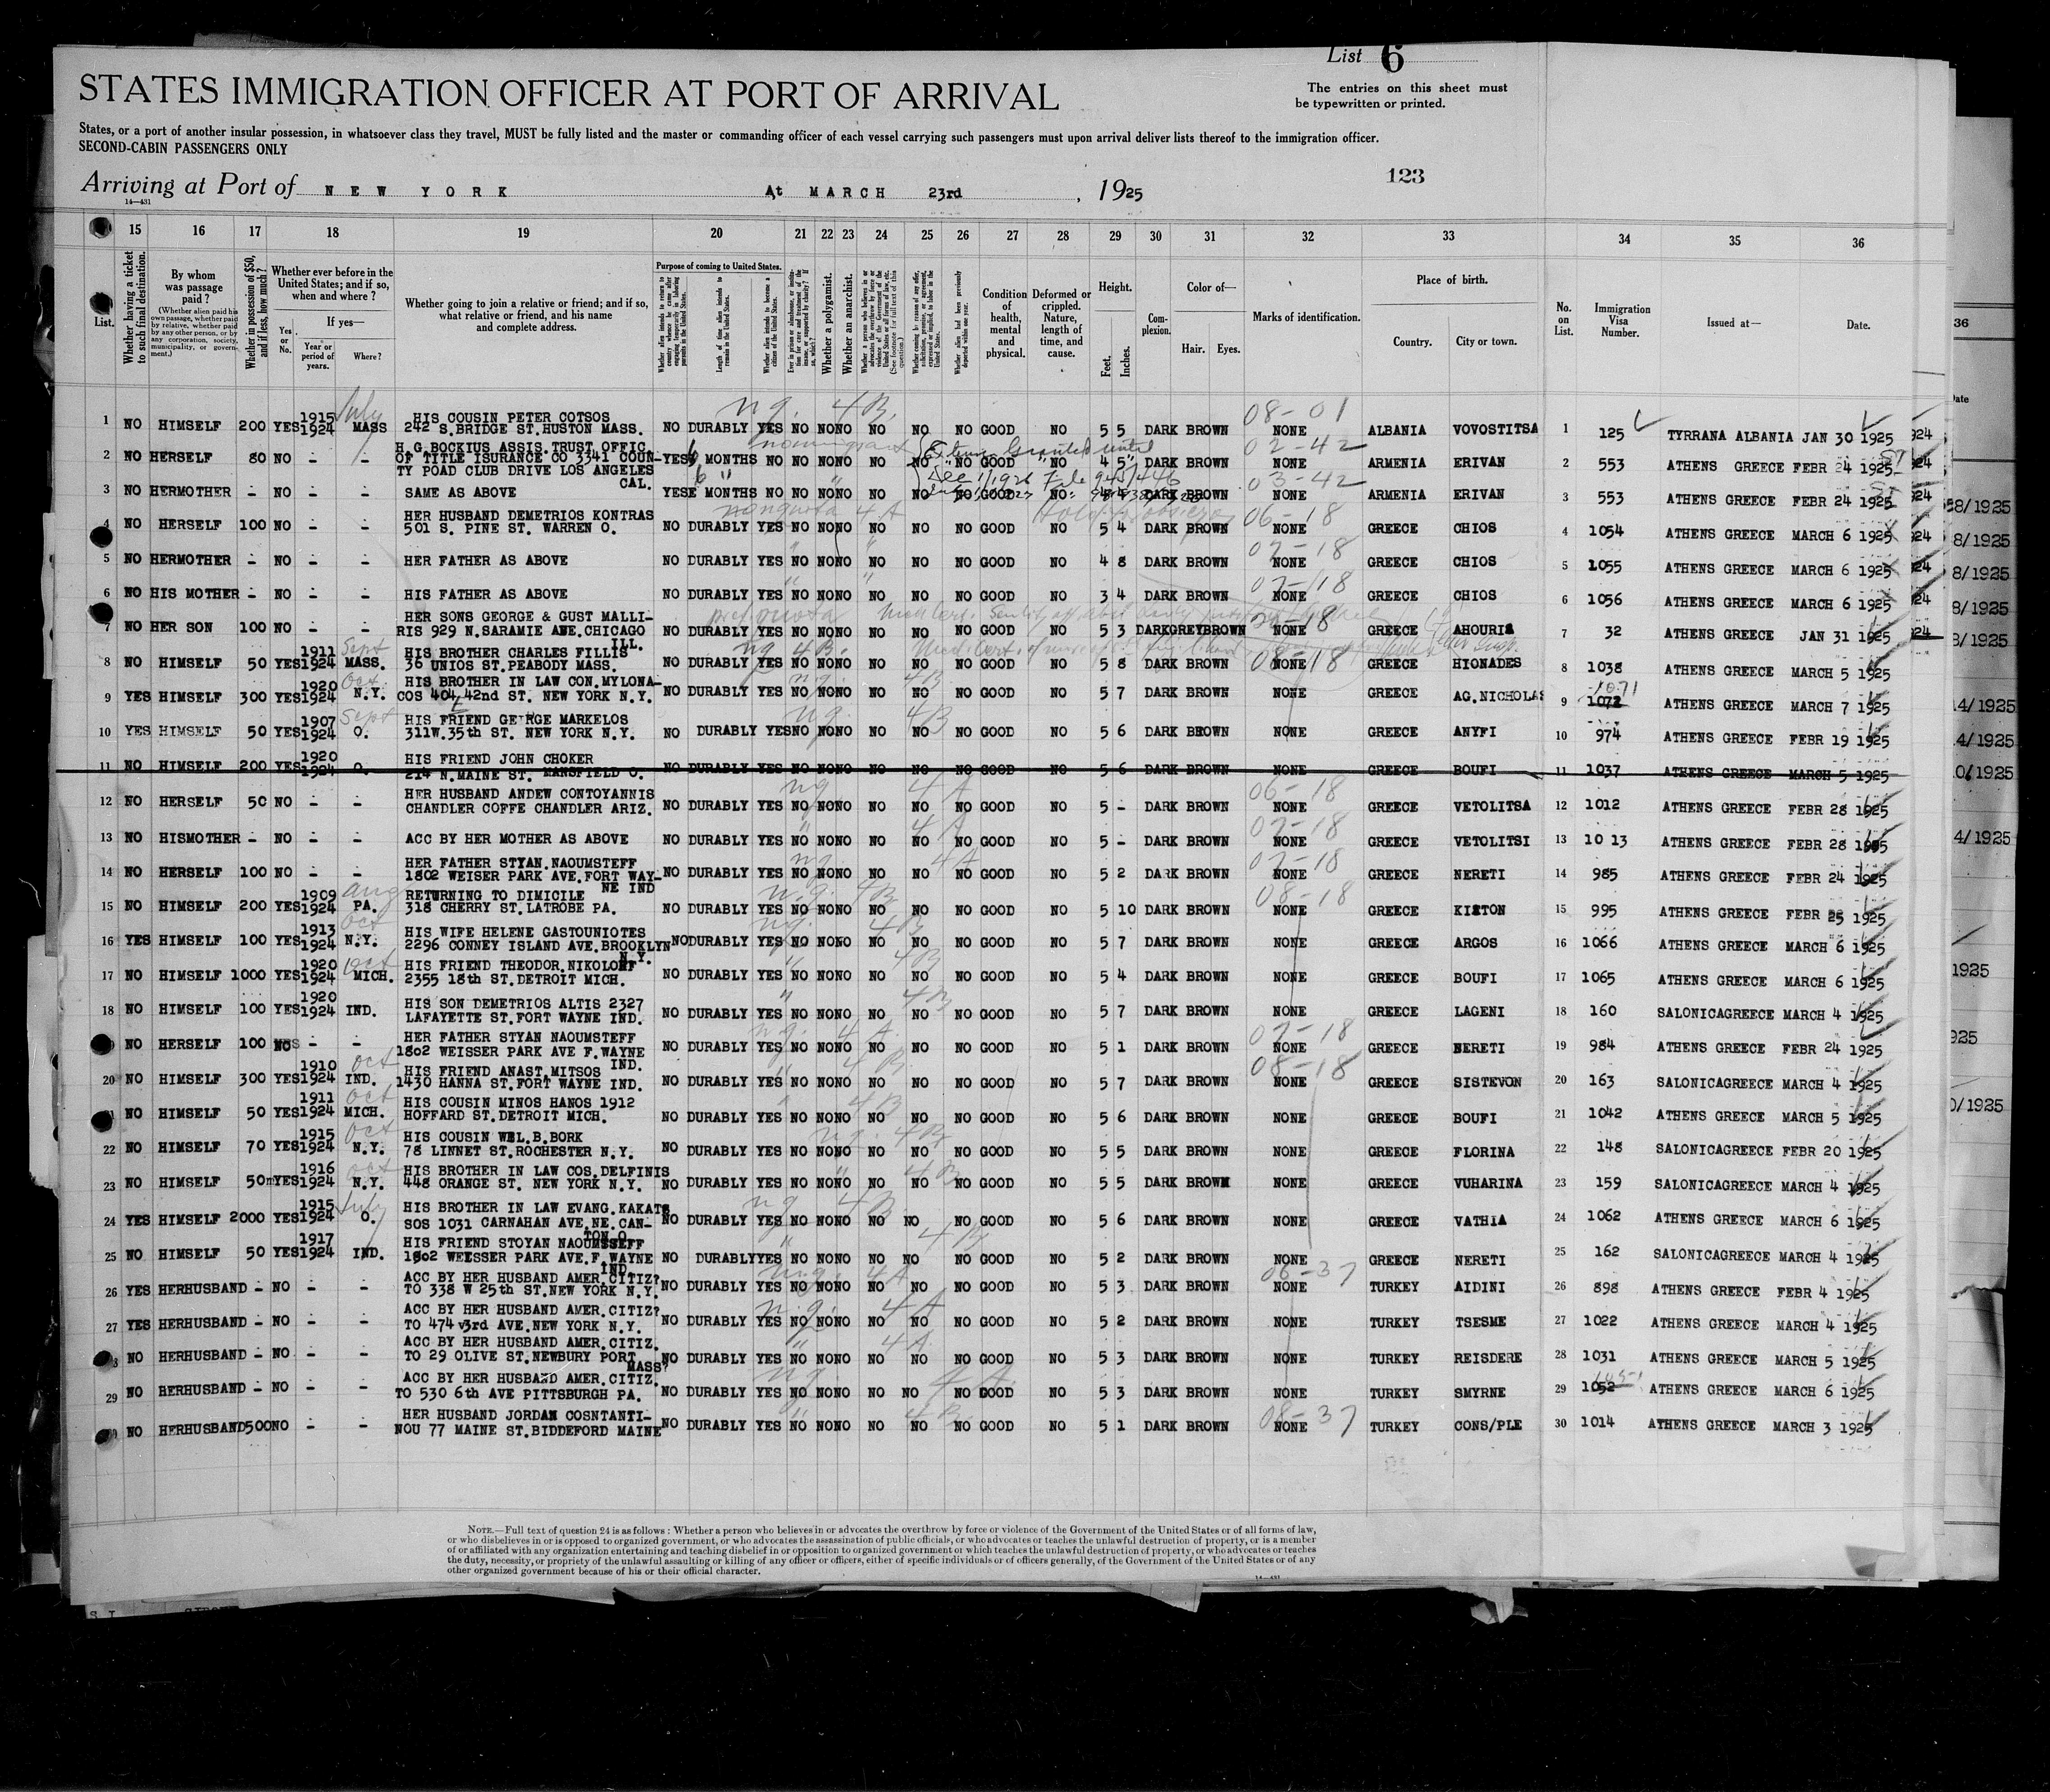 List 6
STATES IMMIGRATION OFFICER AT PORT OF ARRIVAL
The entries on this sheet must
be typewritten or printed.
States, or a port of another insular possession, in whatsoever class they travel, MUST be fully listed and the master or commanding officer of each vessel carrying such passengers must upon arrival deliver lists thereof to the immigration officer.
SECOND-CABIN PASSENGERS ONLY
123
Arriving at Port of NEW YORK At MARCH 23rd, 1925
14—431
15 16 17 18 19 20 21 22 23 24 25 26 27 28 29 30 31 32 33 34 35 36
List.
Whether having a ticket to such final destination.
By whom was passage paid?
(Whether alien paid his own passage, whether paid by relative, whether paid by any other person, or by any corporation, society, municipality, or government.)
Whether in possession of $50, and if less, how much?
Whether ever before in the United States; and if so, when and where?
Yes or No.
If yes—
Year or period of years.
Where?
Whether going to join a relative or friend; and if so, what relative or friend, and his name and complete address.
Purpose of coming to United States.
Length of time alien intends to remain in the United States.
Whether alien intends to become a citizen of the United States.
Whether a polygamist.
Whether an anarchist.
Condition of health, mental and physical.
Deformed or crippled. Nature, length of time, and cause.
Height.
Feet. Inches.
Complexion.
Color of—
Hair. Eyes.
Marks of identification.
Place of birth.
Country. City or town.
No. on List.
Immigration Visa Number.
Issued at—
Date.
1 NO HIMSELF 200 YES 1915 1924 July MASS HIS COUSIN PETER COTSOS 242 S.BRIDGE ST.HUSTON MASS. NO DURABLY YES NO NO NO NO NO NO GOOD NO 5 5 DARK BROWN NONE ALBANIA VOVOSTITSA 1 125 TYRRANA ALBANIA JAN 30 1925
2 NO HERSELF 80 NO - - H.G.BOCKIUS ASSIS.TRUST OFFIC OF TITLE ISURANCE CO 3341 COUN-TY POAD CLUB DRIVE LOS ANGELES CAL. YES 6 MONTHS NO NO NO NO NO NO NO GOOD NO 4 5 DARK BROWN NONE ARMENIA ERIVAN 2 553 ATHENS GREECE FEBR 24 1925
3 NO HERMOTHER - NO - - SAME AS ABOVE YES 6 MONTHS NO NO NO NO NO NO NO GOOD NO 4 4 DARK BROWN NONE ARMENIA ERIVAN 3 553 ATHENS GREECE FEBR 24 1925
4 NO HERSELF 100 NO - - HER HUSBAND DEMETRIOS KONTRAS 501 S. PINE ST. WARREN O. NO DURABLY YES NO NO NO NO NO NO GOOD NO 5 4 DARK BROWN NONE GREECE CHIOS 4 1054 ATHENS GREECE MARCH 6 1925
5 NO HERMOTHER - NO - - HER FATHER AS ABOVE NO DURABLY YES NO NO NO NO NO NO GOOD NO 4 8 DARK BROWN NONE GREECE CHIOS 5 1055 ATHENS GREECE MARCH 6 1925
6 NO HIS MOTHER - NO - - HIS FATHER AS ABOVE NO DURABLY YES NO NO NO NO NO NO GOOD NO 3 4 DARK BROWN NONE GREECE CHIOS 6 1056 ATHENS GREECE MARCH 6 1925
7 NO HER SON 100 NO - - HER SONS GEORGE & GUST MALLI-RIS 929 N.SARAMIE AVE.CHICAGO ILL. NO DURABLY YES NO NO NO NO NO NO GOOD NO 5 3 DARKGREYBROWN NONE GREECE AHOURIA 7 32 ATHENS GREECE JAN 31 1925
8 NO HIMSELF 50 YES 1911 1924 Sept MASS. HIS BROTHER CHARLES FILLIS 36 UNIOS ST.PEABODY MASS. NO DURABLY YES NO NO NO NO NO NO GOOD NO 5 8 DARK BROWN NONE GREECE HIONADES 8 1038 ATHENS GREECE MARCH 5 1925
9 YES HIMSELF 300 YES 1920 1924 Oct. N.Y. HIS BROTHER IN LAW CON.MYLONA-COS 404 42nd ST. NEW YORK N.Y. NO DURABLY YES NO NO NO NO NO NO GOOD NO 5 7 DARK BROWN NONE GREECE AG.NICHOLAS 9 1072 1071 ATHENS GREECE MARCH 7 1925
10 YES HIMSELF 50 YES 1907 1924 Sept O. HIS FRIEND GEORGE MARKELOS 311W.35th ST. NEW YORK N.Y. NO DURABLY YES NO NO NO NO NO NO GOOD NO 5 6 DARK BROWN NONE GREECE ANYFI 10 974 ATHENS GREECE FEBR 19 1925
11 NO HIMSELF 200 YES 1920 1924 O. HIS FRIEND JOHN CHOKER 214 N.MAINE ST. MANSFIELD O. NO DURABLY YES NO NO NO NO NO NO GOOD NO 5 6 DARK BROWN NONE GREECE BOUFI 11 1037 ATHENS GREECE MARCH 5 1925
12 NO HERSELF 50 NO - - HER HUSBAND ANDEW CONTOYANNIS CHANDLER COFFE CHANDLER ARIZ. NO DURABLY YES NO NO NO NO NO NO GOOD NO 5 - DARK BROWN NONE GREECE VETOLITSA 12 1012 ATHENS GREECE FEBR 28 1925
13 NO HISMOTHER - NO - - ACC BY HER MOTHER AS ABOVE NO DURABLY YES NO NO NO NO NO NO GOOD NO 5 - DARK BROWN NONE GREECE VETOLITSI 13 10 13 ATHENS GREECE FEBR 28 1925
14 NO HERSELF 100 NO - - HER FATHER STYAN NAOUMSTEFF 1802 WEISER PARK AVE.FORT WAY-NE IND NO DURABLY YES NO NO NO NO NO NO GOOD NO 5 2 DARK BROWN NONE GREECE NERETI 14 985 ATHENS GREECE FEBR 24 1925
15 NO HIMSELF 200 YES 1909 1924 Aug PA. RETURNING TO DIMICILE 318 CHERRY ST.LATROBE PA. NO DURABLY YES NO NO NO NO NO NO GOOD NO 5 10 DARK BROWN NONE GREECE KISTON 15 995 ATHENS GREECE FEBR 25 1925
16 YES HIMSELF 100 YES 1913 1924 Oct N.Y. HIS WIFE HELENE GASTOUNIOTES 2296 CONNEY ISLAND AVE.BROOKLYN N.Y. NO DURABLY YES NO NO NO NO NO NO GOOD NO 5 7 DARK BROWN NONE GREECE ARGOS 16 1066 ATHENS GREECE MARCH 6 1925
17 NO HIMSELF 1000 YES 1920 1924 Oct MICH. HIS FRIEND THEODOR.NIKOLOFF 2355 18th ST.DETROIT MICH. NO DURABLY YES NO NO NO NO NO NO GOOD NO 5 4 DARK BROWN NONE GREECE BOUFI 17 1065 ATHENS GREECE MARCH 6 1925
18 NO HIMSELF 100 YES 1920 1924 IND. HIS SON DEMETRIOS ALTIS 2327 LAFAYETTE ST.FORT WAYNE IND. NO DURABLY YES NO NO NO NO NO NO GOOD NO 5 7 DARK BROWN NONE GREECE LAGENI 18 160 SALONICAGREECE MARCH 4 1925
NO HERSELF 100 NO - - HER FATHER STYAN NAOUMSTEFF 1802 WEISSER PARK AVE F.WAYNE IND. NO DURABLY YES NO NO NO NO NO NO GOOD NO 5 1 DARK BROWN NONE GREECE NERETI 19 984 ATHENS GREECE FEBR 24 1925
20 NO HIMSELF 300 YES 1910 1924 Oct IND. HIS FRIEND ANAST.MITSOS 1430 HANNA ST.FORT WAYNE IND. NO DURABLY YES NO NO NO NO NO NO GOOD NO 5 7 DARK BROWN NONE GREECE SISTEVON 20 163 SALONICAGREECE MARCH 4 1925
NO HIMSELF 50 YES 1911 1924 Oct MICH. HIS COUSIN MINOS HANOS 1912 HOFFARD ST.DETROIT MICH. NO DURABLY YES NO NO NO NO NO NO GOOD NO 5 6 DARK BROWN NONE GREECE BOUFI 21 1042 ATHENS GREECE MARCH 5 1925
22 NO HIMSELF 70 YES 1915 1924 Oct N.Y. HIS COUSIN WEL.B.BORK 78 LINNET ST.ROCHESTER N.Y. NO DURABLY YES NO NO NO NO NO NO GOOD NO 5 5 DARK BROWN NONE GREECE FLORINA 22 148 SALONICAGREECE FEBR 20 1925
23 NO HIMSELF 50 YES 1916 1924 Oct N.Y. HIS BROTHER IN LAW COS.DELFINIS 448 ORANGE ST. NEW YORK N.Y. NO DURABLY YES NO NO NO NO NO NO GOOD NO 5 5 DARK BROWN NONE GREECE VUHARINA 23 159 SALONICAGREECE MARCH 4 1925
24 YES HIMSELF 2000 YES 1915 1924 July O. HIS BROTHER IN LAW EVANG.KAKATS SOS 1031 CARNAHAN AVE.NE.CAN-TON O. NO DURABLY YES NO NO NO NO NO NO GOOD NO 5 6 DARK BROWN NONE GREECE VATHIA 24 1062 ATHENS GREECE MARCH 6 1925
25 NO HIMSELF 50 YES 1917 1924 IND. HIS FRIEND STOYAN NAOUMSSEFF 1802 WEESSER PARK AVE.F.WAYNE IND. NO DURABLY YES NO NO NO NO NO NO GOOD NO 5 2 DARK BROWN NONE GREECE NERETI 25 162 SALONICAGREECE MARCH 4 1925
26 YES HERHUSBAND - NO - - ACC BY HER HUSBAND AMER.CITIZ? TO 338 W 25th ST.NEW YORK N.Y. NO DURABLY YES NO NO NO NO NO NO GOOD NO 5 3 DARK BROWN NONE TURKEY AIDINI 26 898 ATHENS GREECE FEBR 4 1925
27 YES HERHUSBAND - NO - - ACC BY HER HUSBAND AMER.CITIZ? TO 474 3rd AVE.NEW YORK N.Y. NO DURABLY YES NO NO NO NO NO NO GOOD NO 5 2 DARK BROWN NONE TURKEY TSESME 27 1022 ATHENS GREECE MARCH 4 1925
NO HERHUSBAND - NO - - ACC BY HER HUSBAND AMER.CITIZ. TO 29 OLIVE ST.NEWBURY PORT MASS? NO DURABLY YES NO NO NO NO NO NO GOOD NO 5 3 DARK BROWN NONE TURKEY REISDERE 28 1031 ATHENS GREECE MARCH 5 1925
29 NO HERHUSBAND - NO - - ACC BY HER HUSBAND AMER.CITIZ. TO 530 6th AVE PITTSBURGH PA. NO DURABLY YES NO NO NO NO NO NO GOOD NO 5 3 DARK BROWN NONE TURKEY SMYRNE 29 1052 ATHENS GREECE MARCH 6 1925
NO HERHUSBAND 500 NO - - HER HUSBAND JORDAN COSNTANTI-NOU 77 MAINE ST.BIDDEFORD MAINE NO DURABLY YES NO NO NO NO NO NO GOOD NO 5 1 DARK BROWN NONE TURKEY CONS/PLE 30 1014 ATHENS GREECE MARCH 3 1925
NOTE.—Full text of question 24 is as follows: Whether a person who believes in or advocates the overthrow by force or violence of the Government of the United States or of all forms of law,
or who disbelieves in or is opposed to organized government, or who advocates the assassination of public officials, or who advocates or teaches the unlawful destruction of property, or is a member
of or affiliated with any organization entertaining and teaching disbelief in or opposition to organized government or which teaches the unlawful destruction of property, or who advocates or teaches
the duty, necessity, or propriety of the unlawful assaulting or killing of any officer or officers, either of specific individuals or of officers generally, of the Government of the United States or of any
other organized government because of his or their official character.